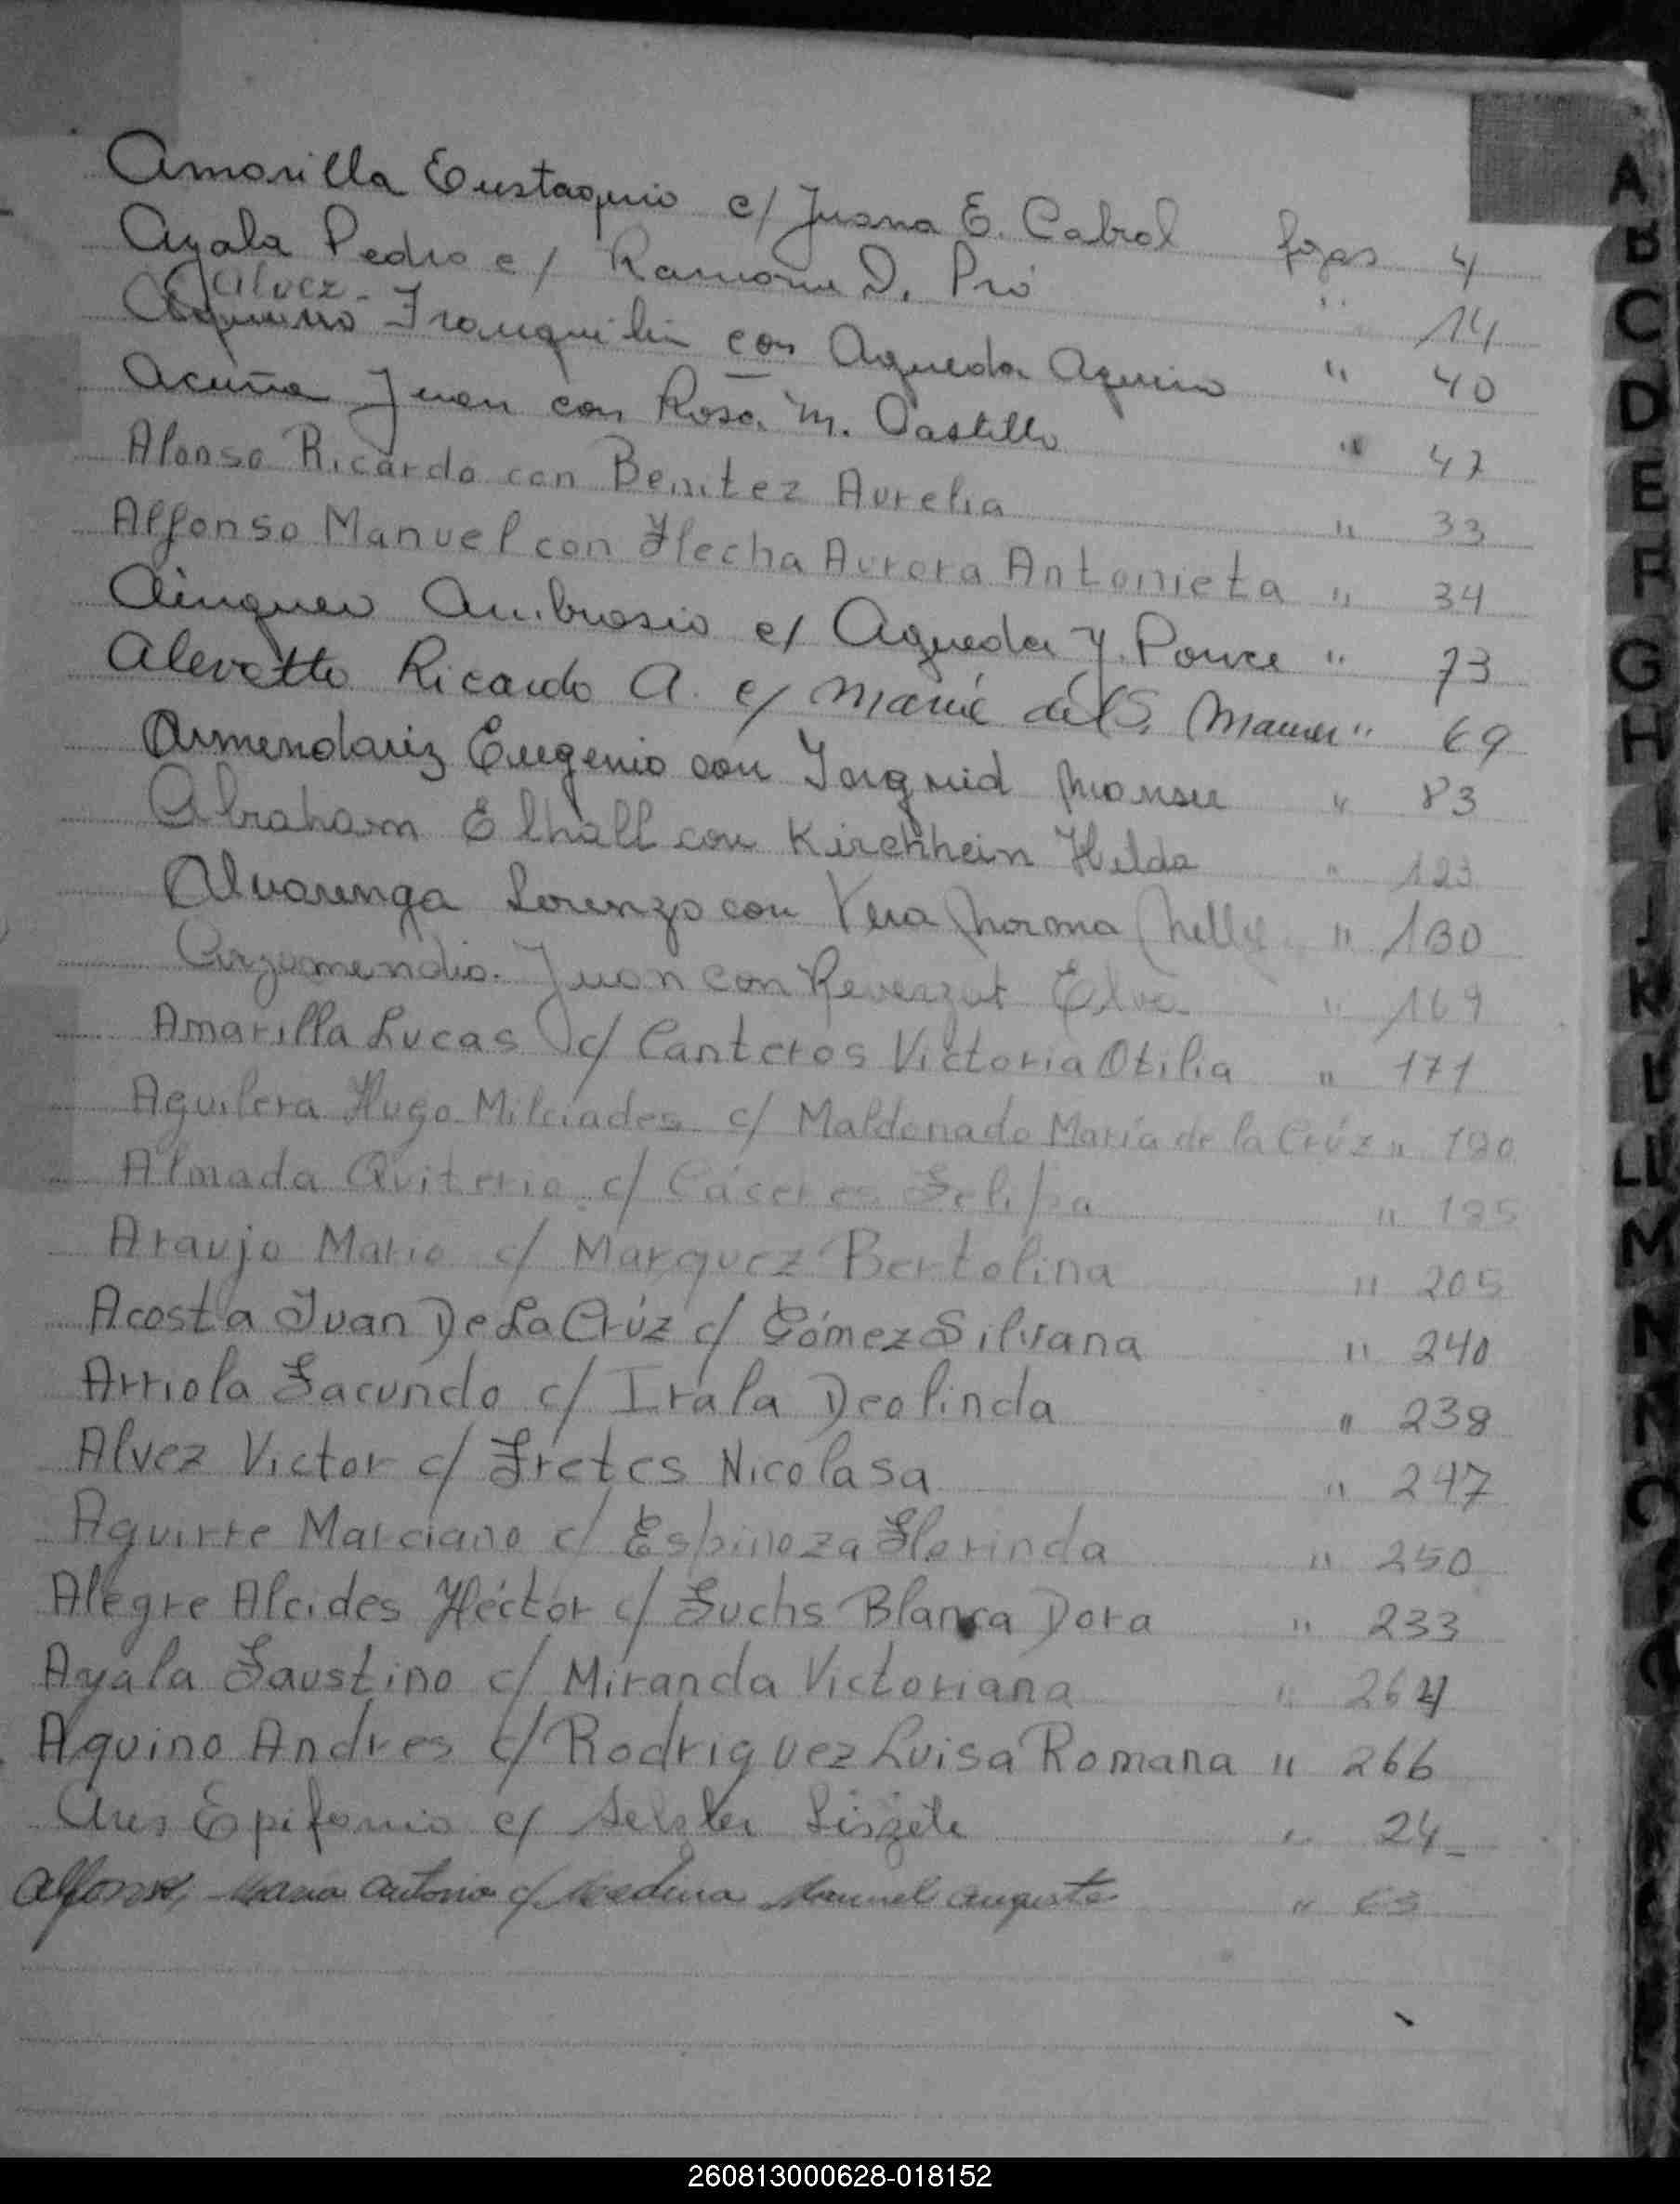 Amarilla Eustaquio c/ Juana E. Cabral fojas 4
Ayala Pedro c/ Ramona D. Pró " 14
Alvez -
Aquino Tranquilin con Agueda Aquino " 40
Acuña Juan con Rosa M. Castillo " 47
Alonso Ricardo con Benitez Aurelia " 33
Alfonso Manuel con Flecha Aurora Antonieta " 34
Ambrosio c/ Agueda Y. Ponce " 73
Alevatto Ricardo A. c/ María del S. " 69
Armendariz Eugenio con Ingrid " 83
Abraham Elhall con Kirchhein Hilda " 123
Alvarenga Lorenzo con Vera Norma Nelly " 130
Arzuomendia Juan con Reverzat Elva " 169
Amarilla Lucas c/ Canteros Victoria Otilia " 171
Aguilera Hugo Milciades c/ Maldonado María de la Crúz " 180
Almada Quiterio c/ Cáceres Felipa " 185
Araujo Mario c/ Marquez Bertolina " 205
Acosta Juan De La Crúz c/ Gómez Silvana " 240
Arriola Facundo c/ Irala Deolinda " 238
Alvez Victor c/ Fretes Nicolasa " 247
Aguirre Marciano c/ Espinoza Florinda " 250
Alegre Alcides Héctor c/ Fuchs Blanca Dora " 233
Ayala Faustino c/ Miranda Victoriana " 264
Aquino Andres c/ Rodriguez Luisa Romana " 266
Epifanio c/ " 24
Alfonso, María Antonia c/ Medina Manuel Augusto " 63
A
B
C
D
E
F
G
H
I
J
K
L
LL
M
N
Ñ
O
260813000628-018152